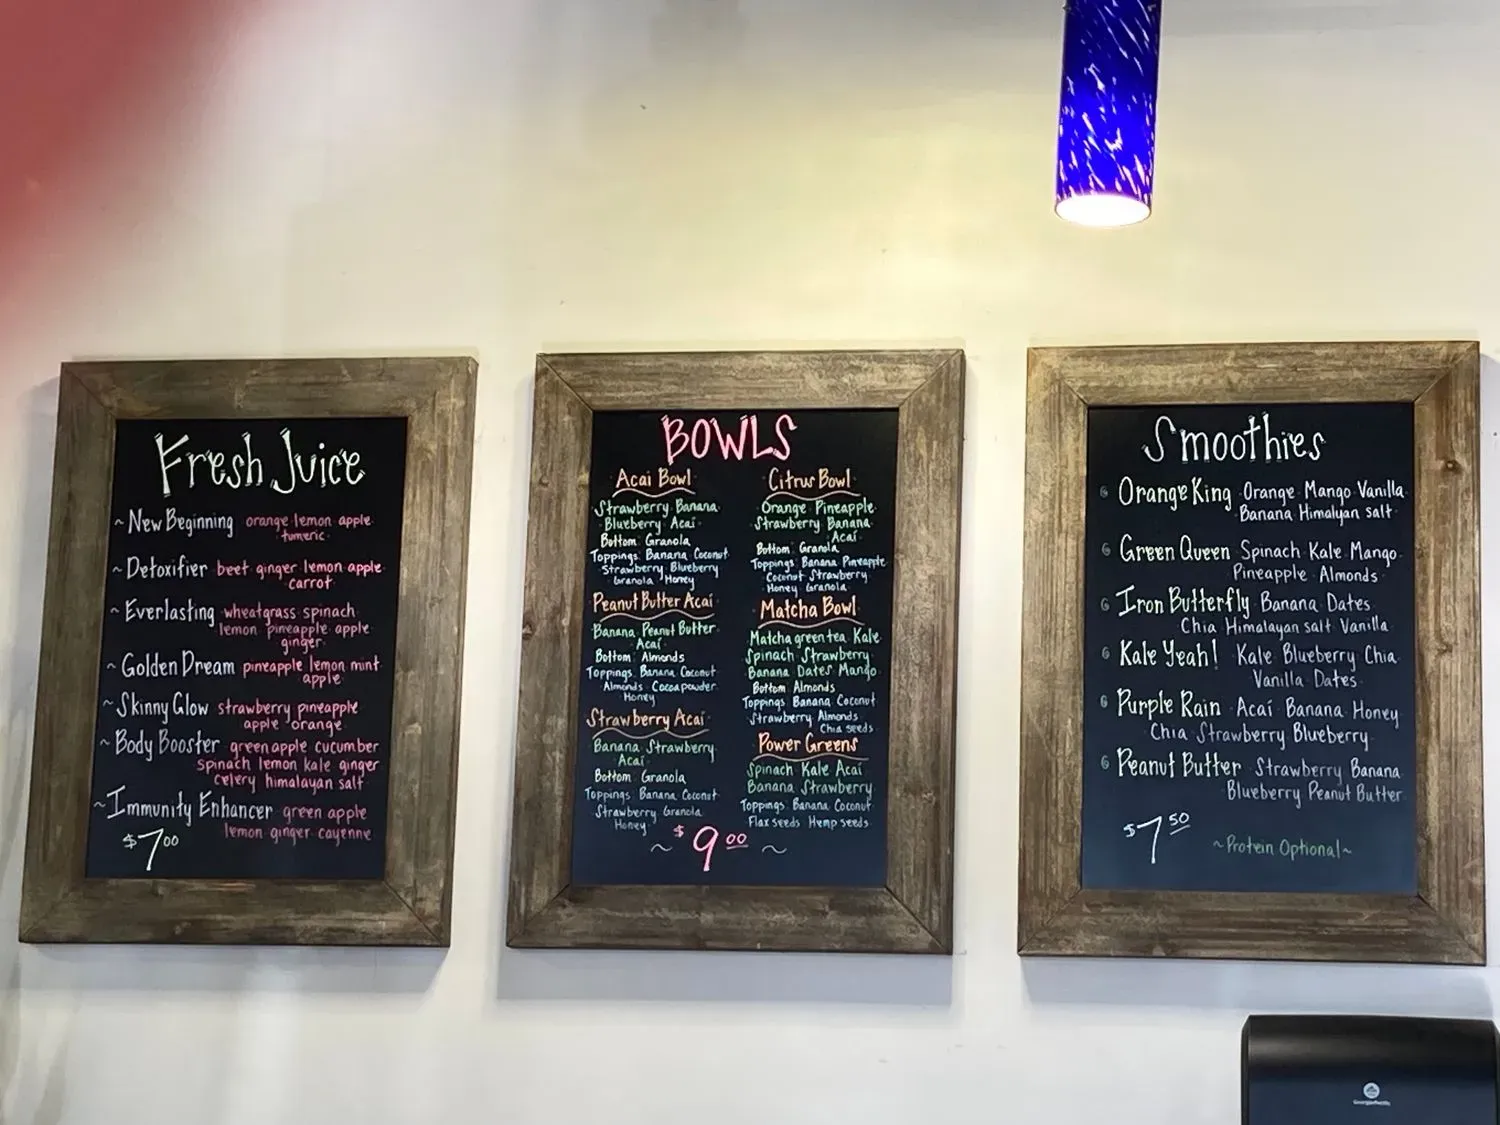 Fresh Juice
~ New Beginning orange lemon apple
tumeric
~ Detoxifier beet ginger lemon apple
carrot
~ Everlasting wheatgrass spinach
lemon pineapple apple
ginger
~ Golden Dream pineapple lemon mint
apple
~ Skinny Glow strawberry pineapple
apple orange
~ Body Booster green apple cucumber
spinach lemon kale ginger
celery himalayan salt
~ Immunity Enhancer green apple
lemon ginger cayenne
$7.00
BOWLS
Acai Bowl
Strawberry Banana
Blueberry Acaí
Bottom Granola
Toppings Banana Coconut
Strawberry Blueberry
Granola Honey
Peanut Butter Acaí
Banana Peanut Butter
Acaí
Bottom Almonds
Toppings Banana Coconut
Almonds Cocoa powder
Honey
Strawberry Acaí
Banana Strawberry
Acaí
Bottom Granola
Toppings Banana Coconut
Strawberry Granola
Honey
Citrus Bowl
Orange Pineapple
Strawberry Banana
Acaí
Bottom Granola
Toppings Banana Pineapple
Coconut Strawberry
Honey Granola
Matcha Bowl
Matcha green tea Kale
Spinach Strawberry
Banana Dates Mango
Bottom Almonds
Toppings Banana Coconut
Strawberry Almonds
Chia seeds
Power Greens
Spinach Kale Acaí
Banana Strawberry
Toppings Banana Coconut
Flax seeds Hemp seeds
~ $9.00 ~
Smoothies
Orange King Orange Mango Vanilla
Banana Himalyan salt
Green Queen Spinach Kale Mango
Pineapple Almonds
Iron Butterfly Banana Dates
Chia Himalayan salt Vanilla
Kale Yeah! Kale Blueberry Chia
Vanilla Dates
Purple Rain Acaí Banana Honey
Chia Strawberry Blueberry
Peanut Butter Strawberry Banana
Blueberry Peanut Butter
$7.50
~ Protein Optional ~
Georgia-Pacific